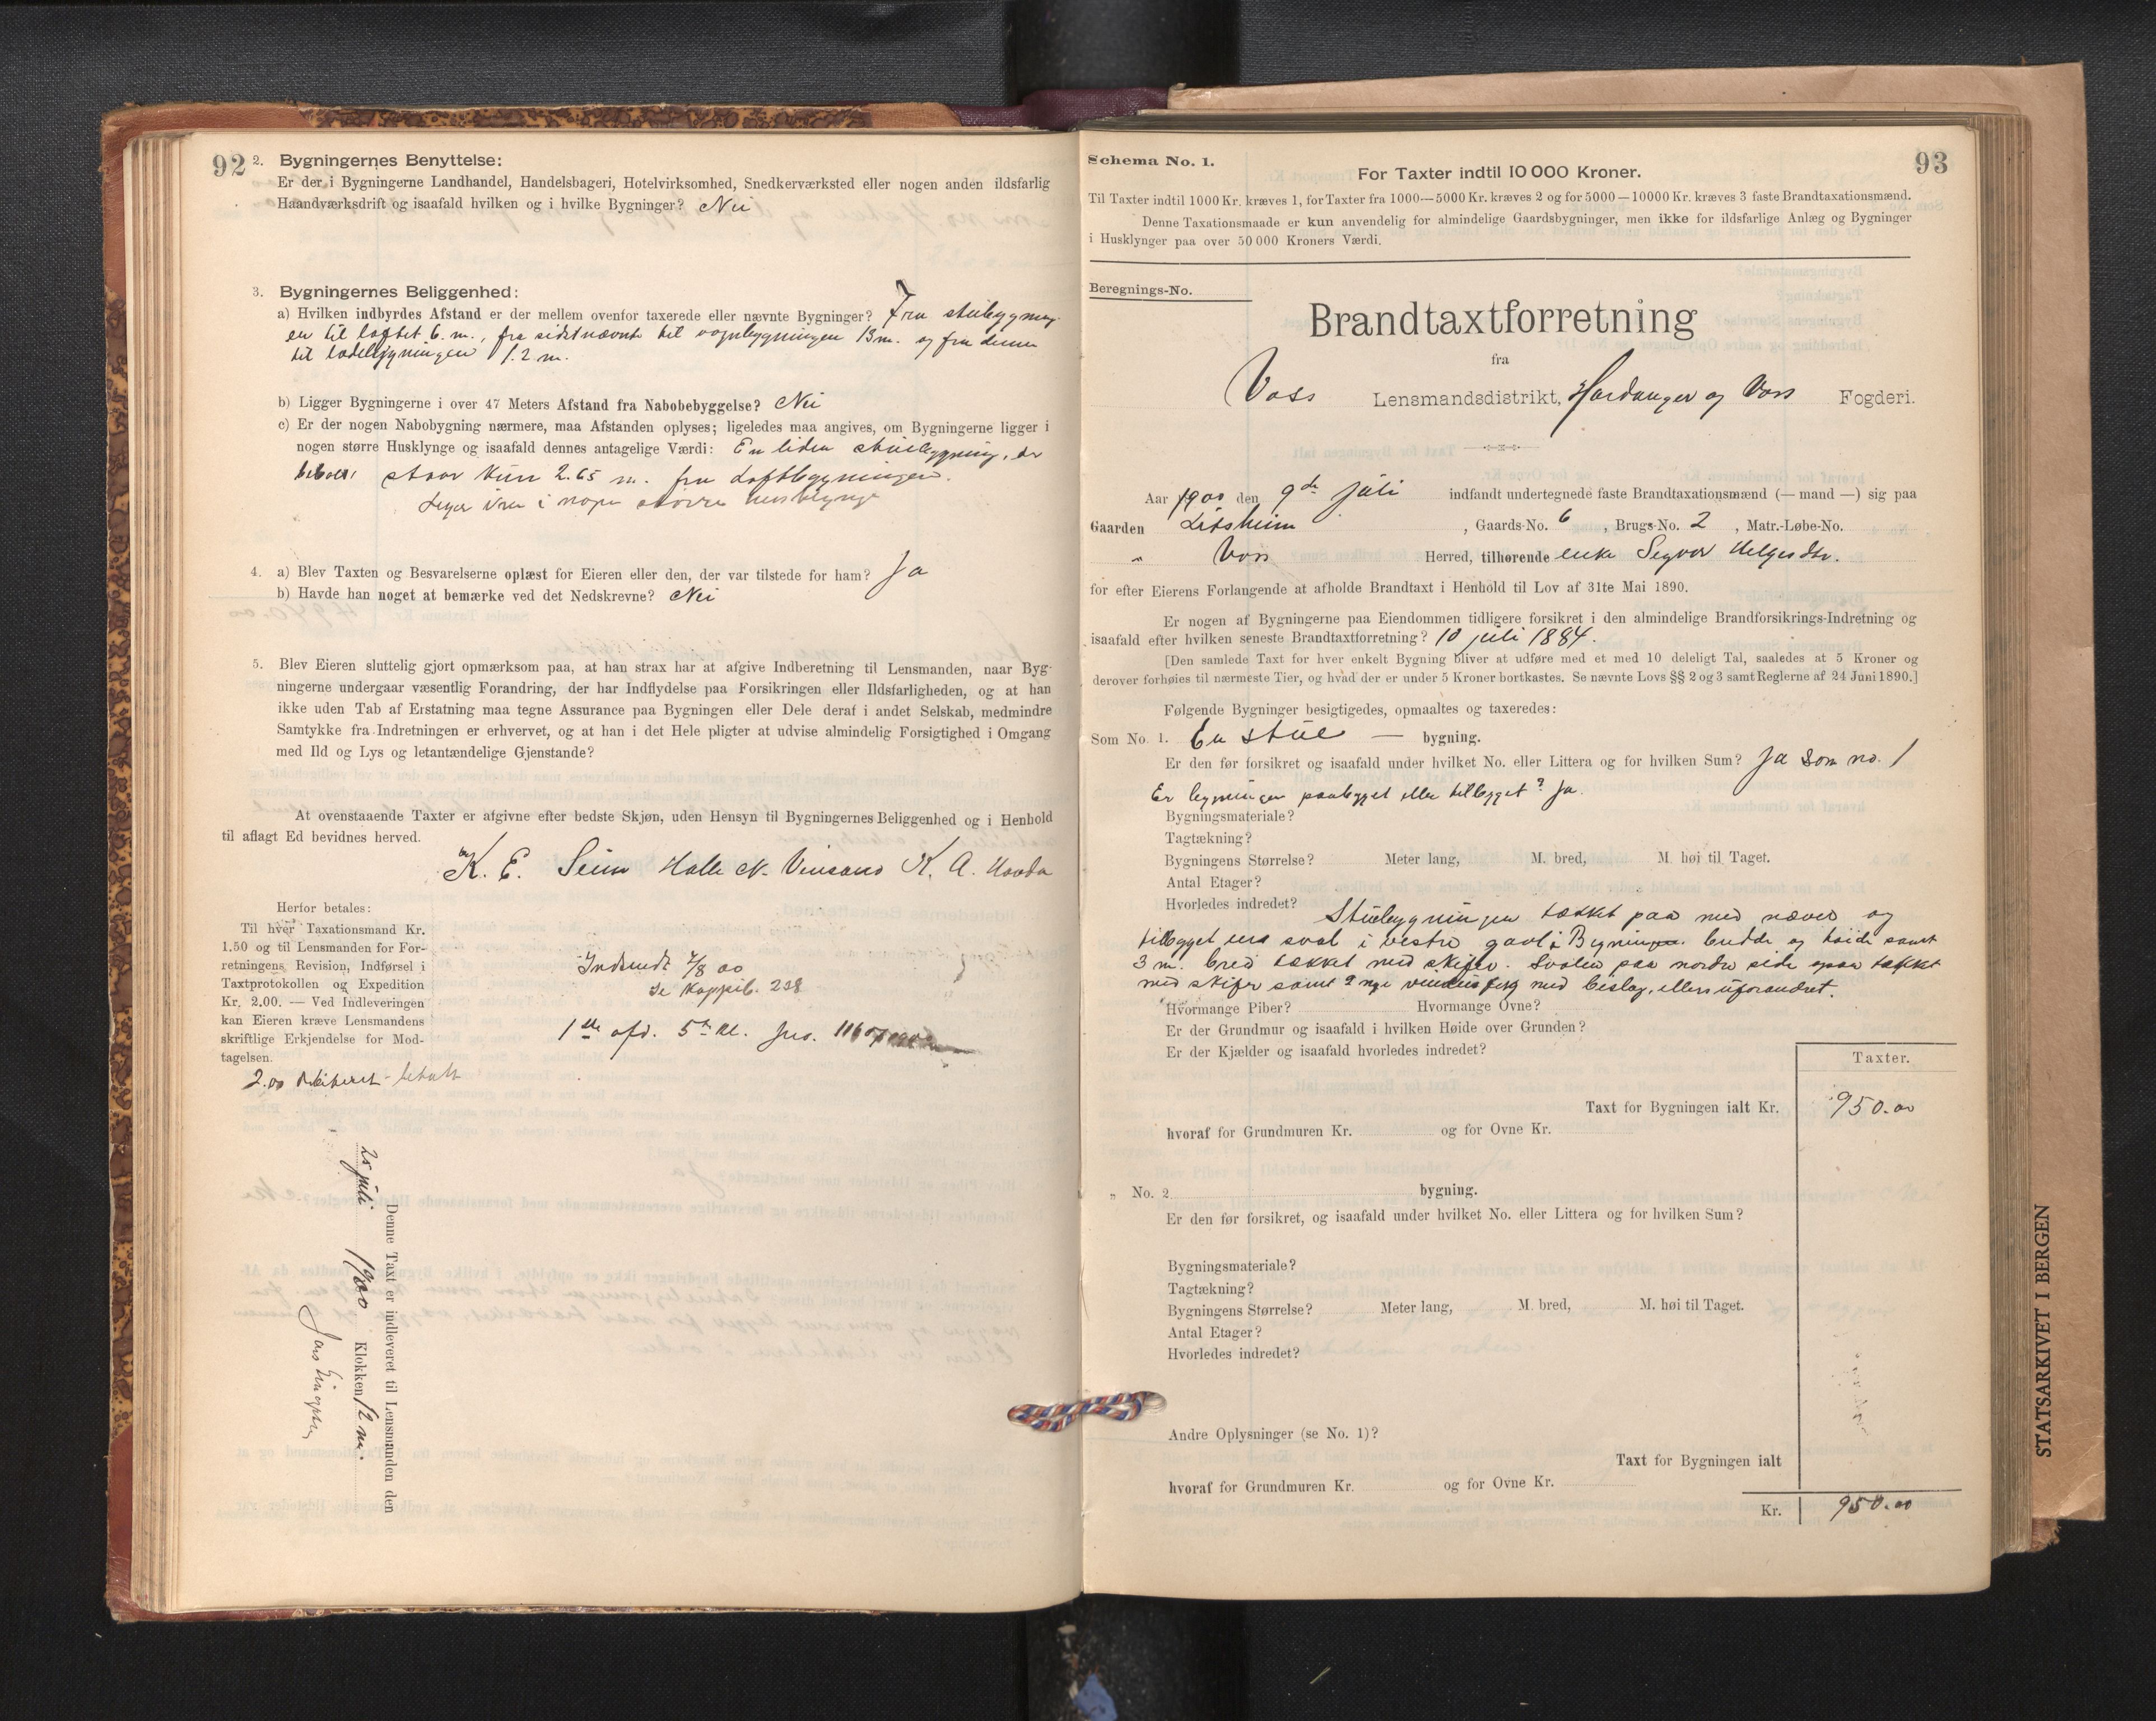 92
2. Bygningernes Benyttelse:
Er der i Bygningerne Landhandel, Handelsbageri, Hotelvirksomhed, Snedkerværksted eller nogen anden ildsfarlig
Haandværksdrift og isaafald hvilken og i hvilke Bygninger? Nei
3. Bygningernes Beliggenhed:
a) Hvilken indbyrdes Afstand er der mellem ovenfor taxerede eller nævnte Bygninger? Fra stuebygning-
en til loftet 6. m., fra sidstnævnte til vognbygningen 13 m. og fra denne
til ladebygningen 1.2 m.
b) Ligger Bygningerne i over 47 Meters Afstand fra Nabobebyggelse? Nei
c) Er der nogen Nabobygning nærmere, maa Afstanden oplyses; ligeledes maa angives, om Bygningerne ligger i
nogen større Husklynge og isaafald dennes antagelige Værdi: En liden stuebygning, der
staar kun 2.65 m. fra Loftbygningen.
Ligger ikke i nogen større husklynge
4. a) Blev Taxten og Besvarelserne oplæst for Eieren eller den, der var tilstede for ham? Ja
b) Havde han noget at bemærke ved det Nedskrevne? Nei
5. Blev Eieren sluttelig gjort opmærksom paa, at han strax har at afgive Indberetning til Lensmanden, naar Byg-
ningerne undergaar væsentlig Forandring, der har Indflydelse paa Forsikringen eller Ildsfarligheden, og at han
ikke uden Tab af Erstatning maa tegne Assurance paa Bygningen eller Dele deraf i andet Selskab, medmindre
Samtykke fra Indretningen er erhvervet, og at han i det Hele pligter at udvise almindelig Forsigtighed i Omgang
med Ild og Lys og letantændelige Gjenstande?
At ovenstaaende Taxter er afgivne efter bedste Skjøn, uden Hensyn til Bygningernes Beliggenhed og i Henhold
til aflagt Ed bevidnes herved.
K. E. Seim Halle N. Vinsand K. A. Hovda
Herfor betales:
Til hver Taxationsmand Kr.
1.50 og til Lensmanden for For-
retningens Revision, Indførsel i
Taxtprotokollen og Expedition
Kr. 2.00. — Ved Indleveringen
kan Eieren kræve Lensmandens
skriftlige Erkjendelse for Mod-
tagelsen.
2.00 betalt
Indsendt 7/8 00
Se Kopib. 238
1ste afd. 5te Kl.
Denne Taxt er indleveret til Lensmanden den
25 juli 1900 Klokken 12 m.
93
Schema No. 1.
For Taxter indtil 10 000 Kroner.
Til Taxter indtil 1000 Kr. kræves 1, for Taxter fra 1000—5000 Kr. kræves 2 og for 5000—10000 Kr. kræves 3 faste Brandtaxationsmænd.
Denne Taxationsmaade er kun anvendelig for almindelige Gaardsbygninger, men ikke for ildsfarlige Anlæg og Bygninger
i Husklynger paa over 50 000 Kroners Værdi.
Beregnings-No.
Brandtaxtforretning
fra
Voss Lensmandsdistrikt, Hardanger og Voss Fogderi.
Aar 1900 den 9de juli indfandt undertegnede faste Brandtaxationsmænd (— mand —) sig paa
Gaarden Lidsheim, Gaards-No. 6, Brugs-No. 2, Matr.-Løbe-No.
„ Voss Herred, tilhørende enke Segvor Helgesdtr.
for efter Eierens Forlangende at afholde Brandtaxt i Henhold til Lov af 31te Mai 1890.
Er nogen af Bygningerne paa Eiendommen tidligere forsikret i den almindelige Brandforsikrings-Indretning og
isaafald efter hvilken seneste Brandtaxtforretning? 10 juli 1884.
[Den samlede Taxt for hver enkelt Bygning bliver at udføre med et med 10 deleligt Tal, saaledes at 5 Kroner og
derover forhøies til nærmeste Tier, og hvad der er under 5 Kroner bortkastes. Se nævnte Lovs §§ 2 og 3 samt Reglerne af 24 Juni 1890.]
Følgende Bygninger besigtigedes, opmaaltes og taxeredes:
Som No. 1. En stue — bygning.
Er den før forsikret og isaafald under hvilket No. eller Littera og for hvilken Sum? Ja som no. 1
Er bygningen paabygget eller tilbygget? Ja.
Bygningsmateriale?
Tagtækning?
Bygningens Størrelse? Meter lang, M. bred, M. høi til Taget.
Antal Etager?
Hvorledes indredet?
Stuebygningen tækket paa med næver og
tilbygget en sval i vestre gavl i Bygningens bredde og høide samt
3 m. bred tækket med skifer. Svalen paa nordre side tækket
med skifer samt 2 nye med beslag, ellers uforandret.
Hvormange Piber? Hvormange Ovne?
Er der Grundmur og isaafald i hvilken Høide over Grunden?
Er der Kjælder og isaafald hvorledes indredet?
Taxter.
Taxt for Bygningen ialt Kr. 950.00
hvoraf for Grundmuren Kr. og for Ovne Kr.
„ No. 2 bygning.
Er den før forsikret, og isaafald under hvilket No. eller Littera og for hvilken Sum?
Bygningsmateriale?
Tagtækning?
Bygningens Størrelse? Meter lang, M. bred, M. høi til Taget.
Antal Etager?
Hvorledes indredet?
Andre Oplysninger (se No. 1)?
Taxt for Bygningen ialt
hvoraf for Grundmuren Kr. og for Ovne Kr.
Kr. 950.00
STATSARKIVET I BERGEN